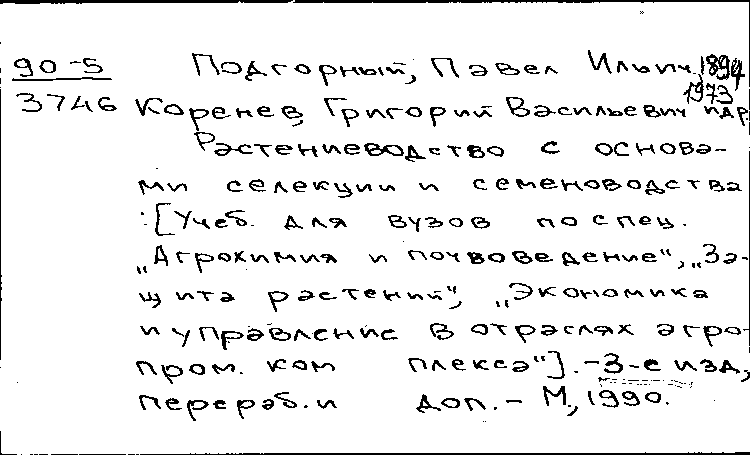 90-5 Подгорный, Павел Ильич, 1894
3746 Коренев, Григорий Васильевич и др. 1973
Растениеводство с основа-
ми селекции и семеноводства
: [Учеб. для вузов по спец.
„Агрохимия и почвоведение“, „За-
щита растений“, „Экономика
и управление в отраслях агро-
пром. ком плекса“]. - 3-е изд.,
перераб. и доп. - М., 1990.